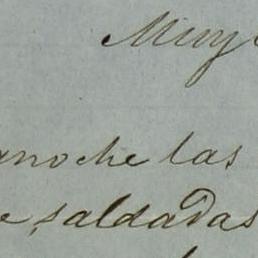 Muy
anoche las
e, saldadas